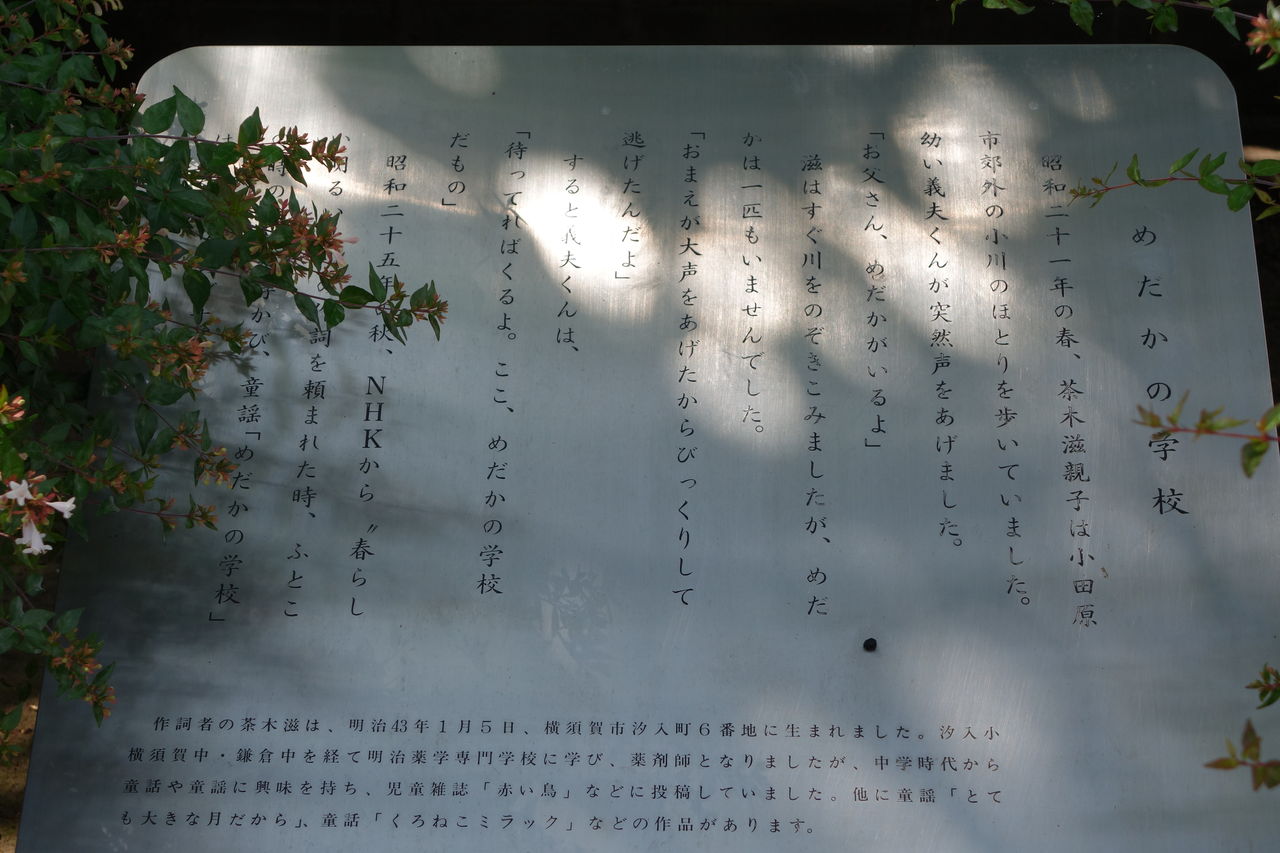 めだかの学校
昭和二十一年の春、茶木滋親子は小田原
市郊外の小川のほとりを歩いていました。
幼い義夫くんが突然声をあげました。
「お父さん、めだかがいるよ」
滋はすぐ川をのぞきこみましたが、めだ
かは一匹もいませんでした。
「おまえが大声をあげたからびっくりして
逃げたんだよ」
すると義夫くんは、
「待ってればくるよ。ここ、めだかの学校
だもの」
昭和二十五年 秋、NHKから〝春らし
明る 詞を頼まれた時、ふとこ
時の かび、童謡「めだかの学校」
は
作詞者の茶木滋は、明治43年1月5日、横須賀市汐入町6番地に生まれました。汐入小
横須賀中・鎌倉中を経て明治薬学専門学校に学び、薬剤師となりましたが、中学時代から
童話や童謡に興味を持ち、児童雑誌「赤い鳥」などに投稿していました。他に童謡「とて
も大きな月だから」、童話「くろねこミラック」などの作品があります。